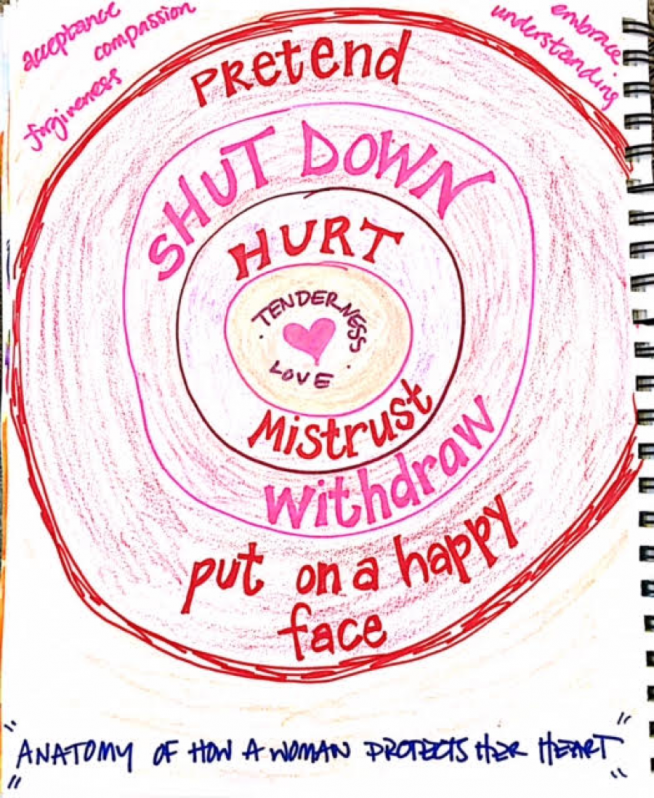 acceptance
compassion
forgiveness
embrace
understanding
PRetend
SHUT DOWN
HURT
TENDERNESS
LOVE
Mistrust
Withdraw
put on a happy
face
"ANATOMY OF HOW A WOMAN PROTECTS HER HEART"